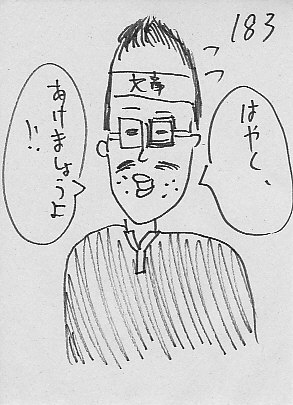 183
はやく、
あけましょうよ
!!